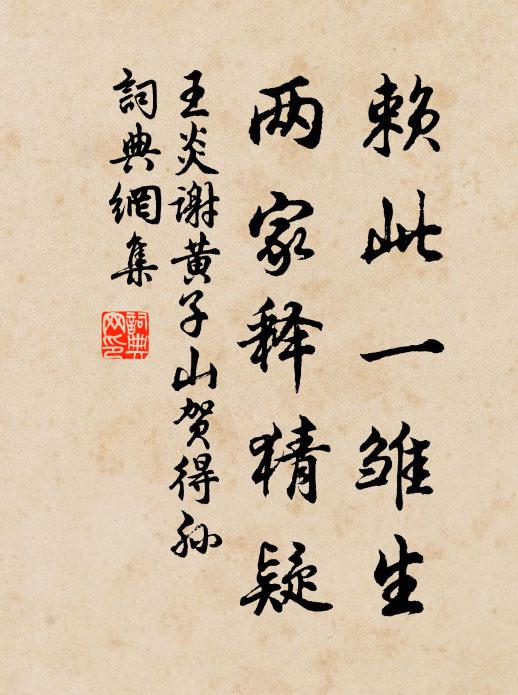 赖此一雏生
两家释猜疑
王炎谢黄子山贺得孙
詞典網集
詞典
网印